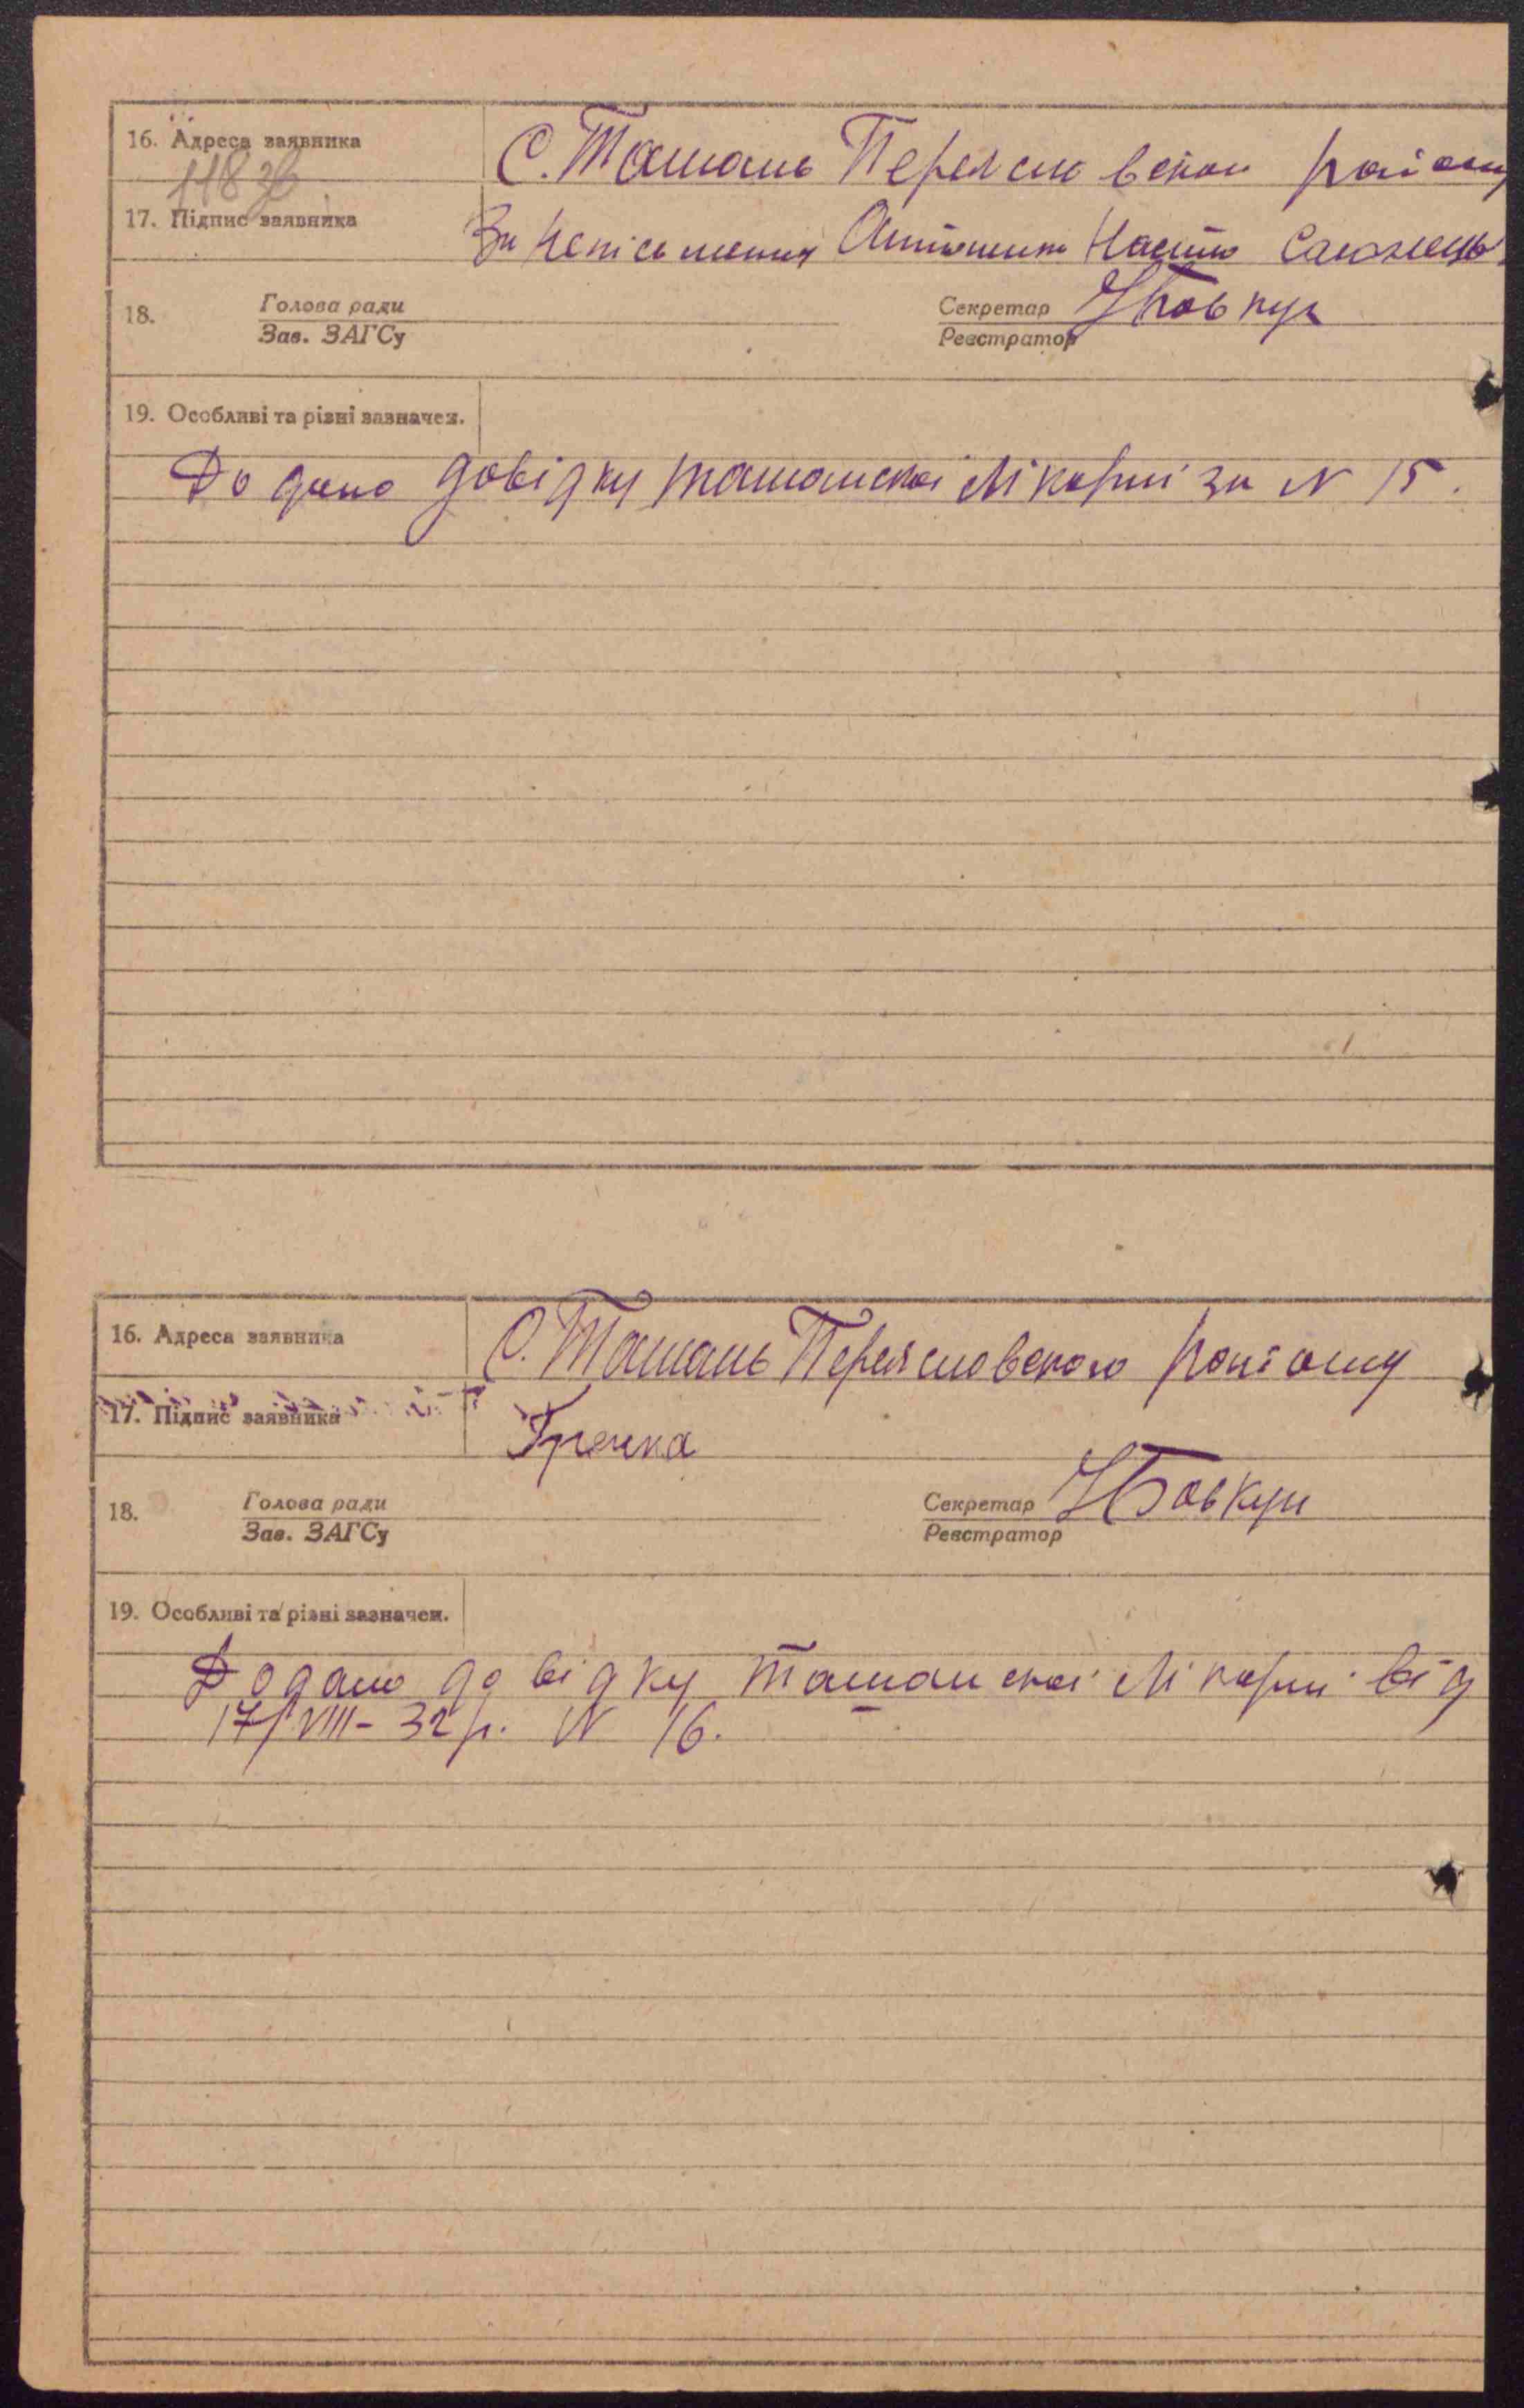 16. Адреса заявника С. Ташань Переяславськ району
118 зв
17. Підпис заявника За неписьменну Антоненко Настю
18. Голова ради Секретар НБовкун
Зав. ЗАГСу Реєстратор
19. Особливі та різні зазначен.
Додано довідку ташанскоі лікарні за N 15.
16. Адреса заявника С. Ташань Переясловського району
17. Підпис заявника Гречка
18. Голова ради Секретар НБовкун
Зав. ЗАГСу Реєстратор
19. Особливі та різні зазначен.
Додано довідку ташанскоі лікарні від
17/VIII-32 р. N 16.